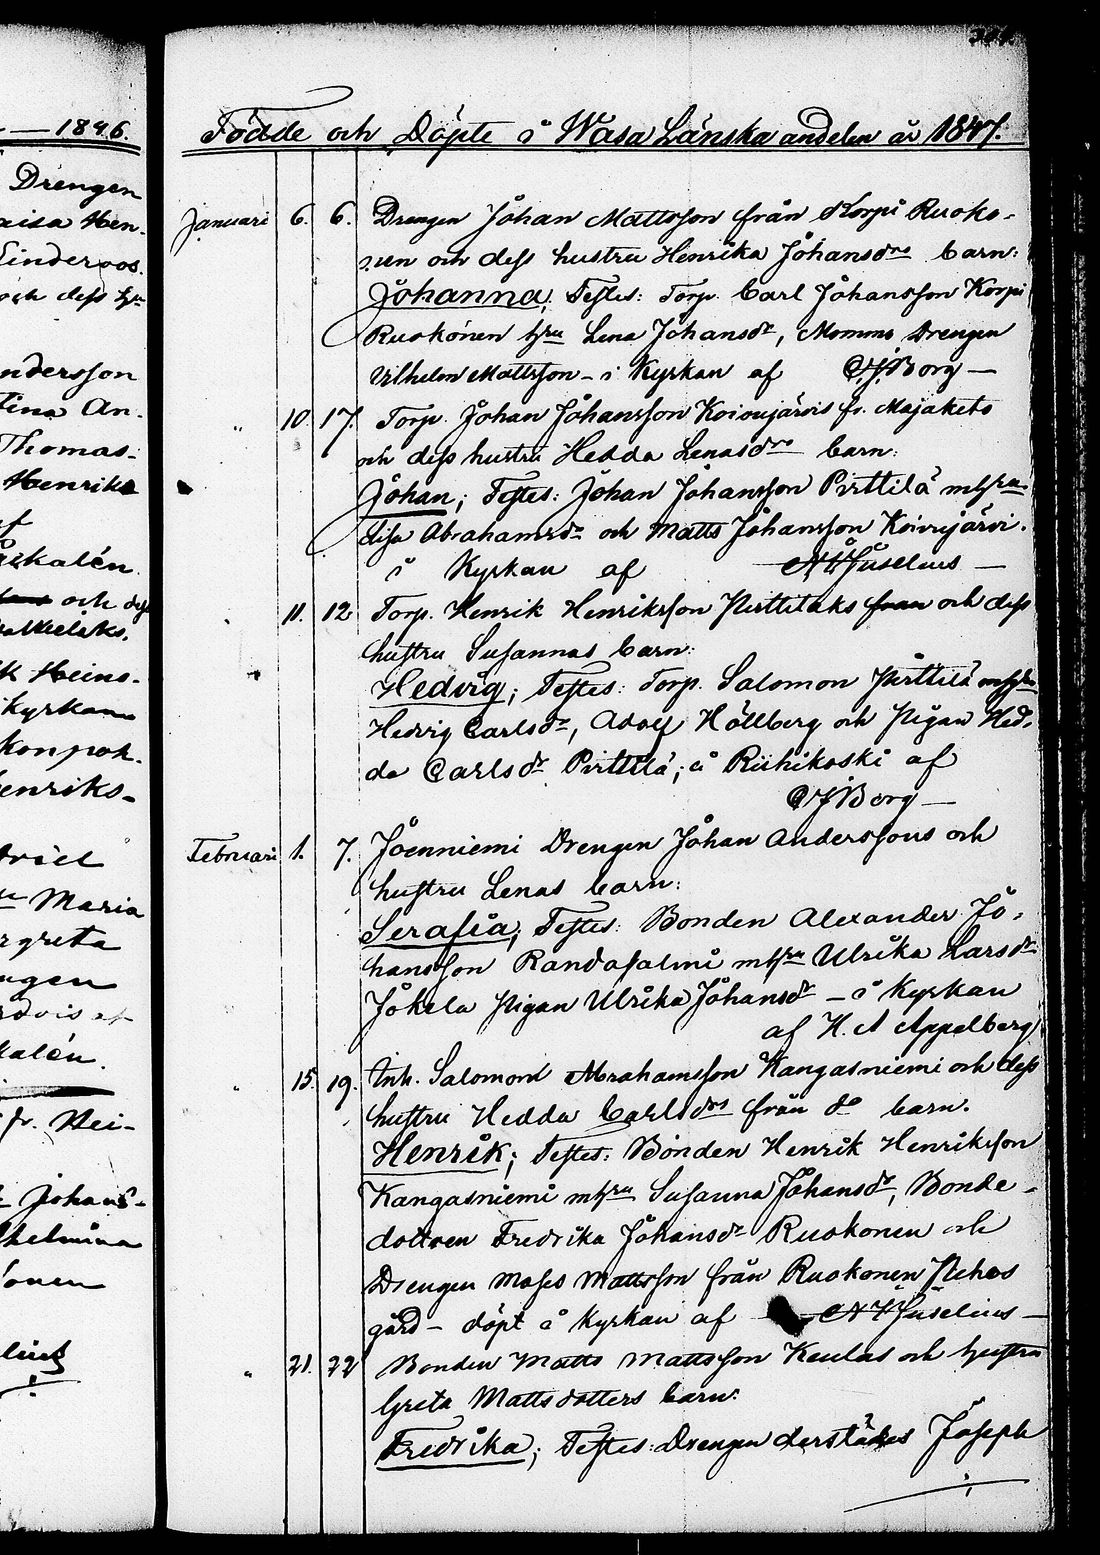 — 1846.
Drengen
aisa Hen-
Lindroos.
och dess h:
ndersson
tina An-
Thomas-
Henriks
kalén
och dess
k Heins-
Kyrkan
konpoh-
enriks-
Maria
rgreta
ngen
kalén.
fr. Hei-
Johans-
helmina
Födde och Döpte i Wasa Länska andelen år 1847.
Januari 6. 6. Drengen Johan Mattsson från Korpi Ruoko-
nen och dess hustru Henrika Johansdrs barn:
Johanna; Testes: Torp. Carl Johansson Korpi
Ruokonen hru Lena Johansdr, Mommo Drengen
Vilhelm Mattsson – i Kyrkan af CJ Borg —
" 10. 17. Torp. Johan Johansson Koivujärvis fr. Majakets
och dess hustru Hedda Lenasdrs barn:
Johan; Testes: Johan Johansson Pirttilä m hru
Lisa Abrahamsdr och Matts Johansson Koivujärvi.
i Kyrkan af Juselius —
" 11. 12 Torp. Henrik Henriksson Pirttiläks från och dess
hustru Susannas barn:
Hedvig; Testes: Torp. Salomon Pirttilä m hru
Hedvig Carlsdr, Adolf Hällberg och Pigan Hed-
da Carlsdr Pirttilä; i Riihikoski af
CJ Borg —
Februari 1. 7. Joenniemi Drengen Johan Anderssons och
hustru Lenas barn:
Serafia; Testes: Bonden Alexander Jo-
hansson Randasalmi m hru Ulrika Larsdr
Jokela Pigan Ulrika Johansdr – i Kyrkan
af H. A Appelberg
" 15. 19. Inh. Salomon Abrahamsson Kangasniemi och dess
hustru Hedda Carlsdrs från do barn.
Henrik; Testes: Bonden Henrik Henriksson
Kangasniemi m hru Susanna Johansdr, Bonde-
dottren Fredrika Johansdr Ruokonen och
Drengen Moses Mattsson från Ruokonen Nehos
gård – döpt i Kyrkan af Juselius —
" 21. 22 Bonden Matts Mattsson Keulas och hustru
Greta Mattsdotters barn:
Fredrika; Testes: Drengen derstädes Joseph